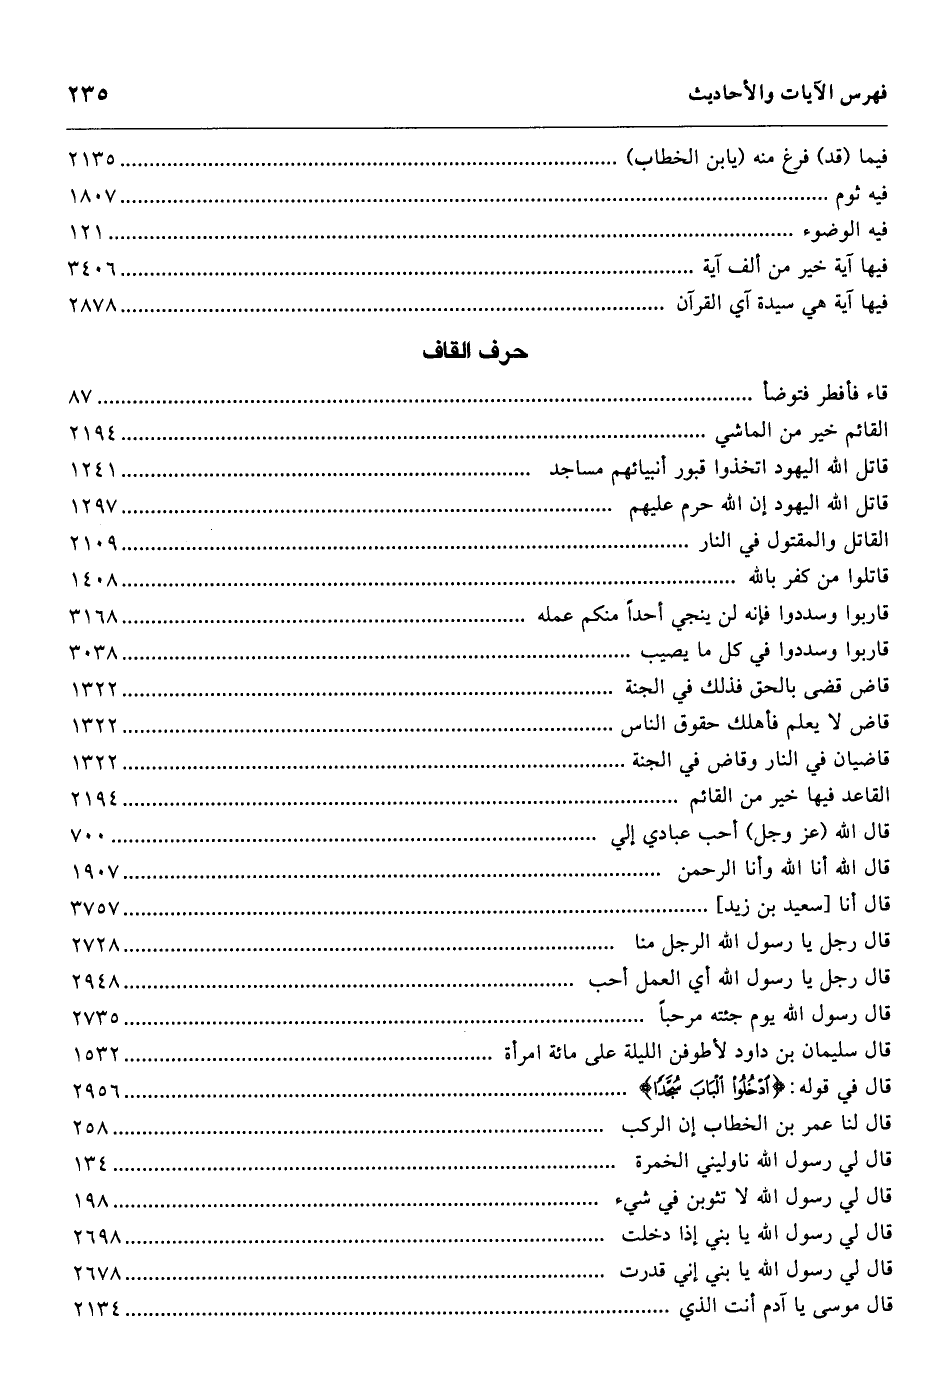 فهرس الآيات والأحاديث ٢٣٥
فيما (قد) فرغ منه (يابن الخطاب) ........ ٢١٣٥
فيه ثوم ........ ١٨٠٧
فيه الوضوء ........ ١٢١
فيها آية خير من ألف آية ........ ٣٤٠٦
فيها آية هي سيدة آي القرآن ........ ٢٨٧٨
حرف القاف
قاء فأفطر فتوضأ ........ ٨٧
القائم خير من الماشي ........ ٢١٩٤
قاتل الله اليهود اتخذوا قبور أنبيائهم مساجد ........ ١٢٤١
قاتل الله اليهود إن الله حرم عليهم ........ ١٢٩٧
القاتل والمقتول في النار ........ ٢١٠٩
قاتلوا من كفر بالله ........ ١٤٠٨
قاربوا وسددوا فإنه لن ينجي أحداً منكم عمله ........ ٣١٦٨
قاربوا وسددوا في كل ما يصيب ........ ٣٠٣٨
قاض قضى بالحق فذلك في الجنة ........ ١٣٢٢
قاض لا يعلم فأهلك حقوق الناس ........ ١٣٢٢
قاضيان في النار وقاض في الجنة ........ ١٣٢٢
القاعد فيها خير من القائم ........ ٢١٩٤
قال الله (عز وجل) أحب عبادي إلي ........ ٧٠٠
قال الله أنا الله وأنا الرحمن ........ ١٩٠٧
قال أنا [سعيد بن زيد] ........ ٣٧٥٧
قال رجل يا رسول الله الرجل منا ........ ٢٧٢٨
قال رجل يا رسول الله أي العمل أحب ........ ٢٩٤٨
قال رسول الله يوم جئته مرحباً ........ ٢٧٣٥
قال سليمان بن داود لأطوفن الليلة على مائة امرأة ........ ١٥٣٢
قال في قوله: ﴿ٱدْخُلُوا۟ ٱلْبَابَ سُجَّدًا﴾ ........ ٢٩٥٦
قال لنا عمر بن الخطاب إن الركب ........ ٢٥٨
قال لي رسول الله ناوليني الخمرة ........ ١٣٤
قال لي رسول الله لا تثوبن في شيء ........ ١٩٨
قال لي رسول الله يا بني إذا دخلت ........ ٢٦٩٨
قال لي رسول الله يا بني إني قدرت ........ ٢٦٧٨
قال موسى يا آدم أنت الذي ........ ٢١٣٤